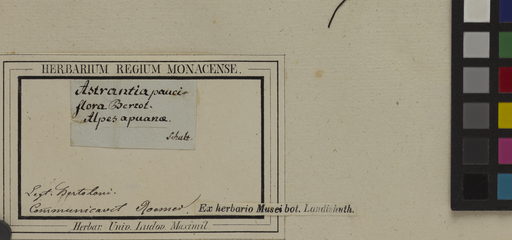 HERBARIUM REGIUM MONACENSE.
Astrantia pauci-
flora Bertol.
Alpes apuanæ.
Schultz.
Legt. Bertoloni.
Communicavit Roemer.
Ex herbario Musei bot. Landishuth.
Herbar. Univ. Ludov. Maximil